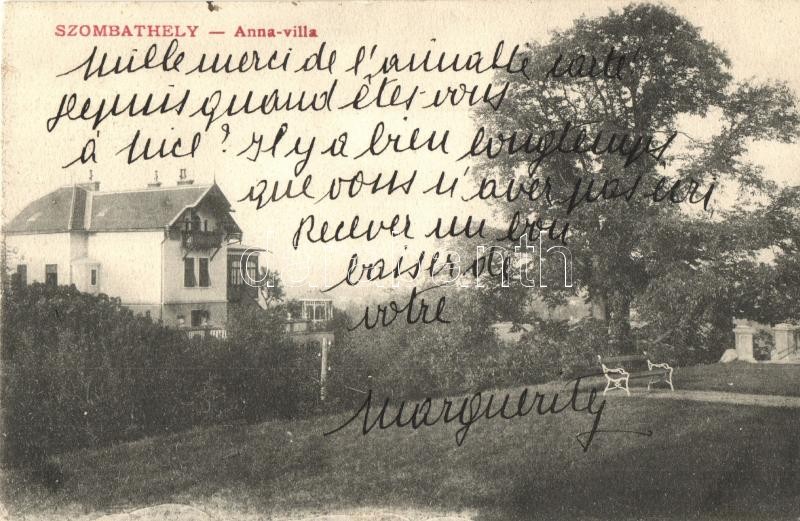 SZOMBATHELY — Anna-villa
Mille merci de l'aimable carte!
Depuis quand êtes-vous
à Nice? Il y a bien longtemps
que vous n'aver pas écri
Recever un bon
baiser de
votre
Marguerity